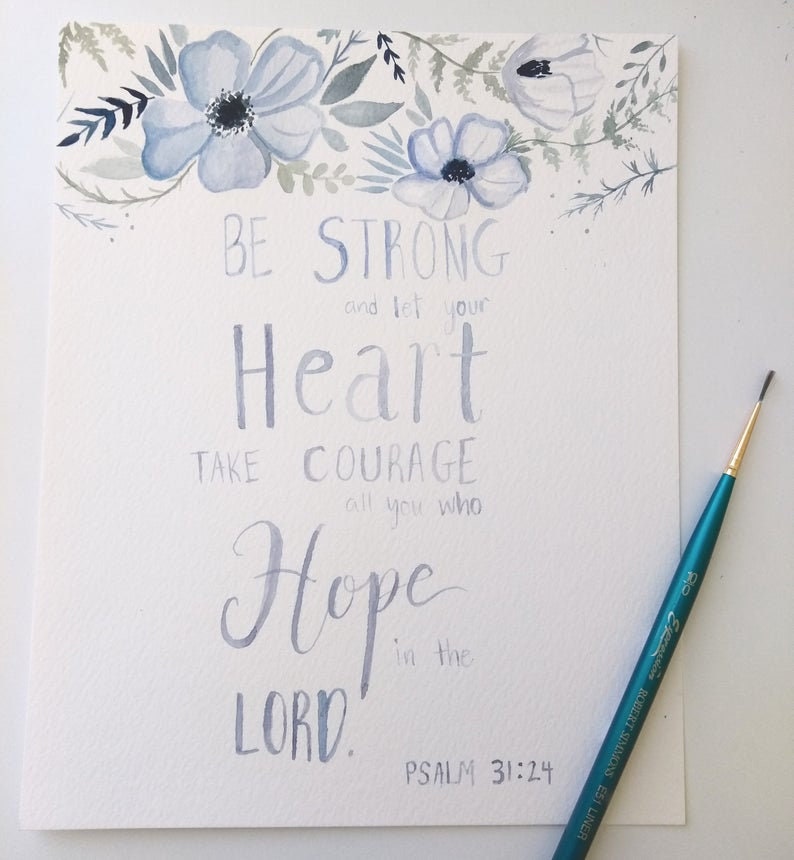 BE STRONG
and let your
Heart
TAKE COURAGE
all you who
Hope
in the
LORD.
PSALM 31:24
Expression ROBERT SIMMONS E51 LINER